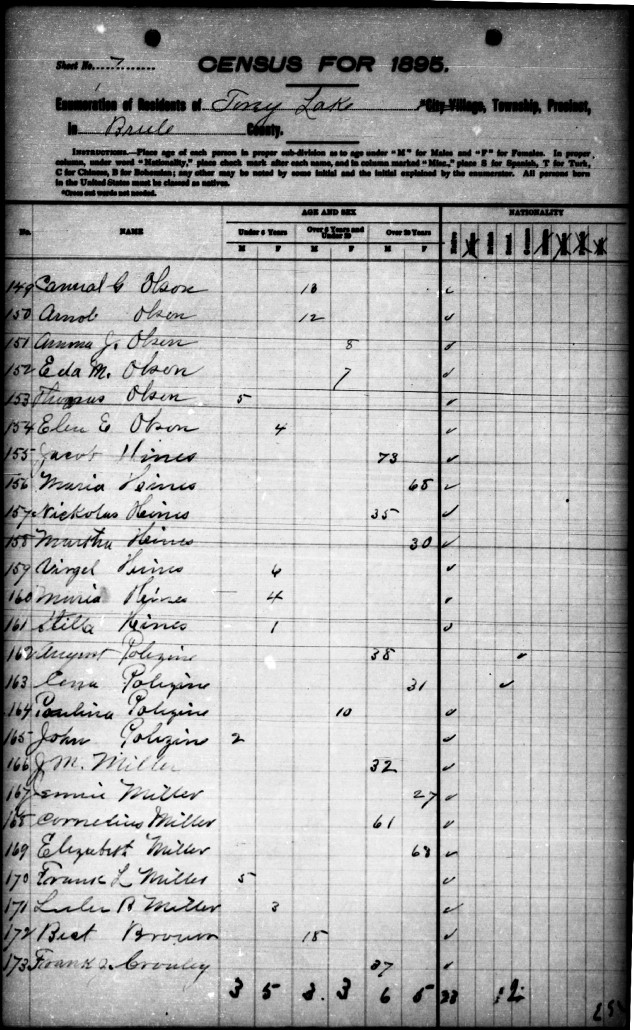 Sheet No. 7
CENSUS FOR 1895.
Enumeration of Residents of Lake City, Village, Township, Precinct,
in Brule County.
INSTRUCTIONS.—Place age of each person in proper sub-division as to age under "M" for Males and "F" for Females. In proper
column, under word "Nationality," place check mark after each name, and in column marked "Misc.," place S for Spanish, T for Turk,
C for Chinese, B for Bohemian; any other may be noted by some initial and the initial explained by the enumerator. All persons born
in the United States must be classed as natives.
*Cross out words not needed.
AGE AND SEX NATIONALITY
No. NAME Under 6 Years Over 6 Years and Under 20 Over 20 Years
M F M F M F
149 G Olson ✓
150 Olson 12 ✓
151 J. Olson 8 ✓
152 Eda M. Olson 7 ✓
153 Thomas Olson 5 ✓
154 E Olson 4 ✓
155 Jacob Hines 73 ✓
156 Maria Heines ✓
157 Nickolas Heines 35 ✓
158 Martha Heines 30 ✓
159 Virgel Hines ✓
160 Maria Heines 4 ✓
161 Stella Heines 1 ✓
162 August Polizine 38 ✓
163 Lena Polizine 31 ✓
164 Paulina Polizine 10 ✓
165 John Polizine 2 ✓
166 J. M. Miller 32 ✓
167 Miller 27 ✓
168 Cornelius Miller 61 ✓
169 Elizabeth Miller ✓
170 Frank L Miller 5 ✓
171 B Miller 3 ✓
172 Bert Brown ✓
173 Frank J. Crowley ✓
3 5 3 3 6 5 23 1 2